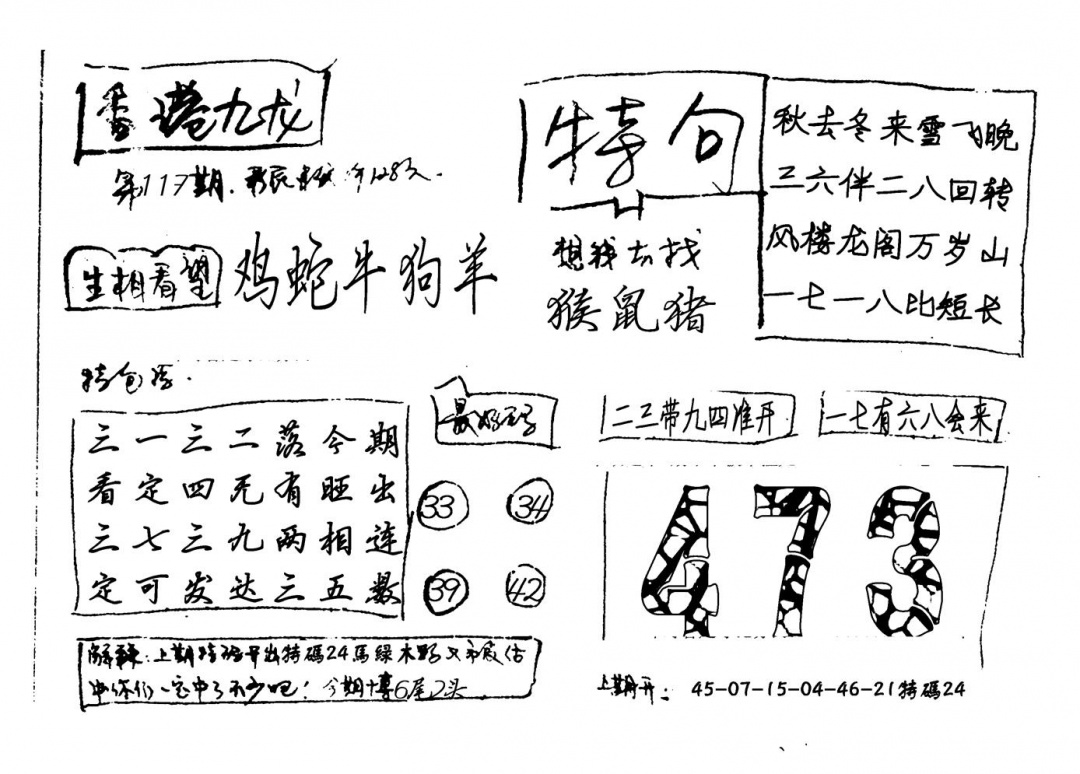 香港九龙
第117期.
生相看望
鸡蛇牛狗羊
特句
想我去找
猴鼠猪
秋去冬来雪飞晚
三六伴二八回转
风楼龙阁万岁山
一七一八比短长
特包
三一三二落今期
看定四无有旺出
三七三九两相连
定可发达三五数
最好
33 34
39 42
二三带九四准开
一七有六八会来
473
上期 开出特碼24馬綠木野
今期博6尾2头
上期开: 45-07-15-04-46-21特碼24